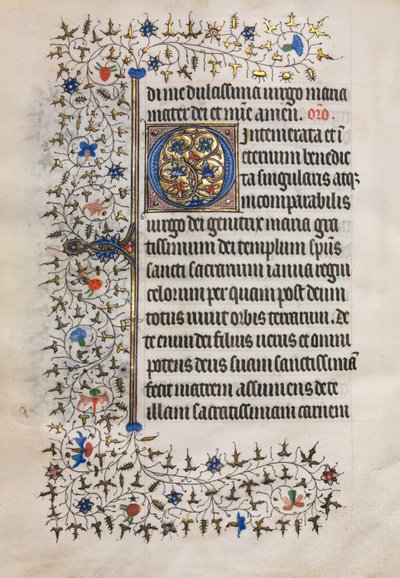 di me dulcissima uirgo maria
mater dei et mie amen. oro.
O Intemerata et i
eternum benedic
ta singularis atqz
incomparabilis
uirgo dei genitrix maria gra
tissimum dei templum spus
sancti sacrarium ianua regni
celorum per quam post deum
totus uiuit orbis terrarum. de
te enim dei filius uerus et omni
potens deus suam sanctissimam
fecit matrem assumens de te
illam sacratissimam carnem